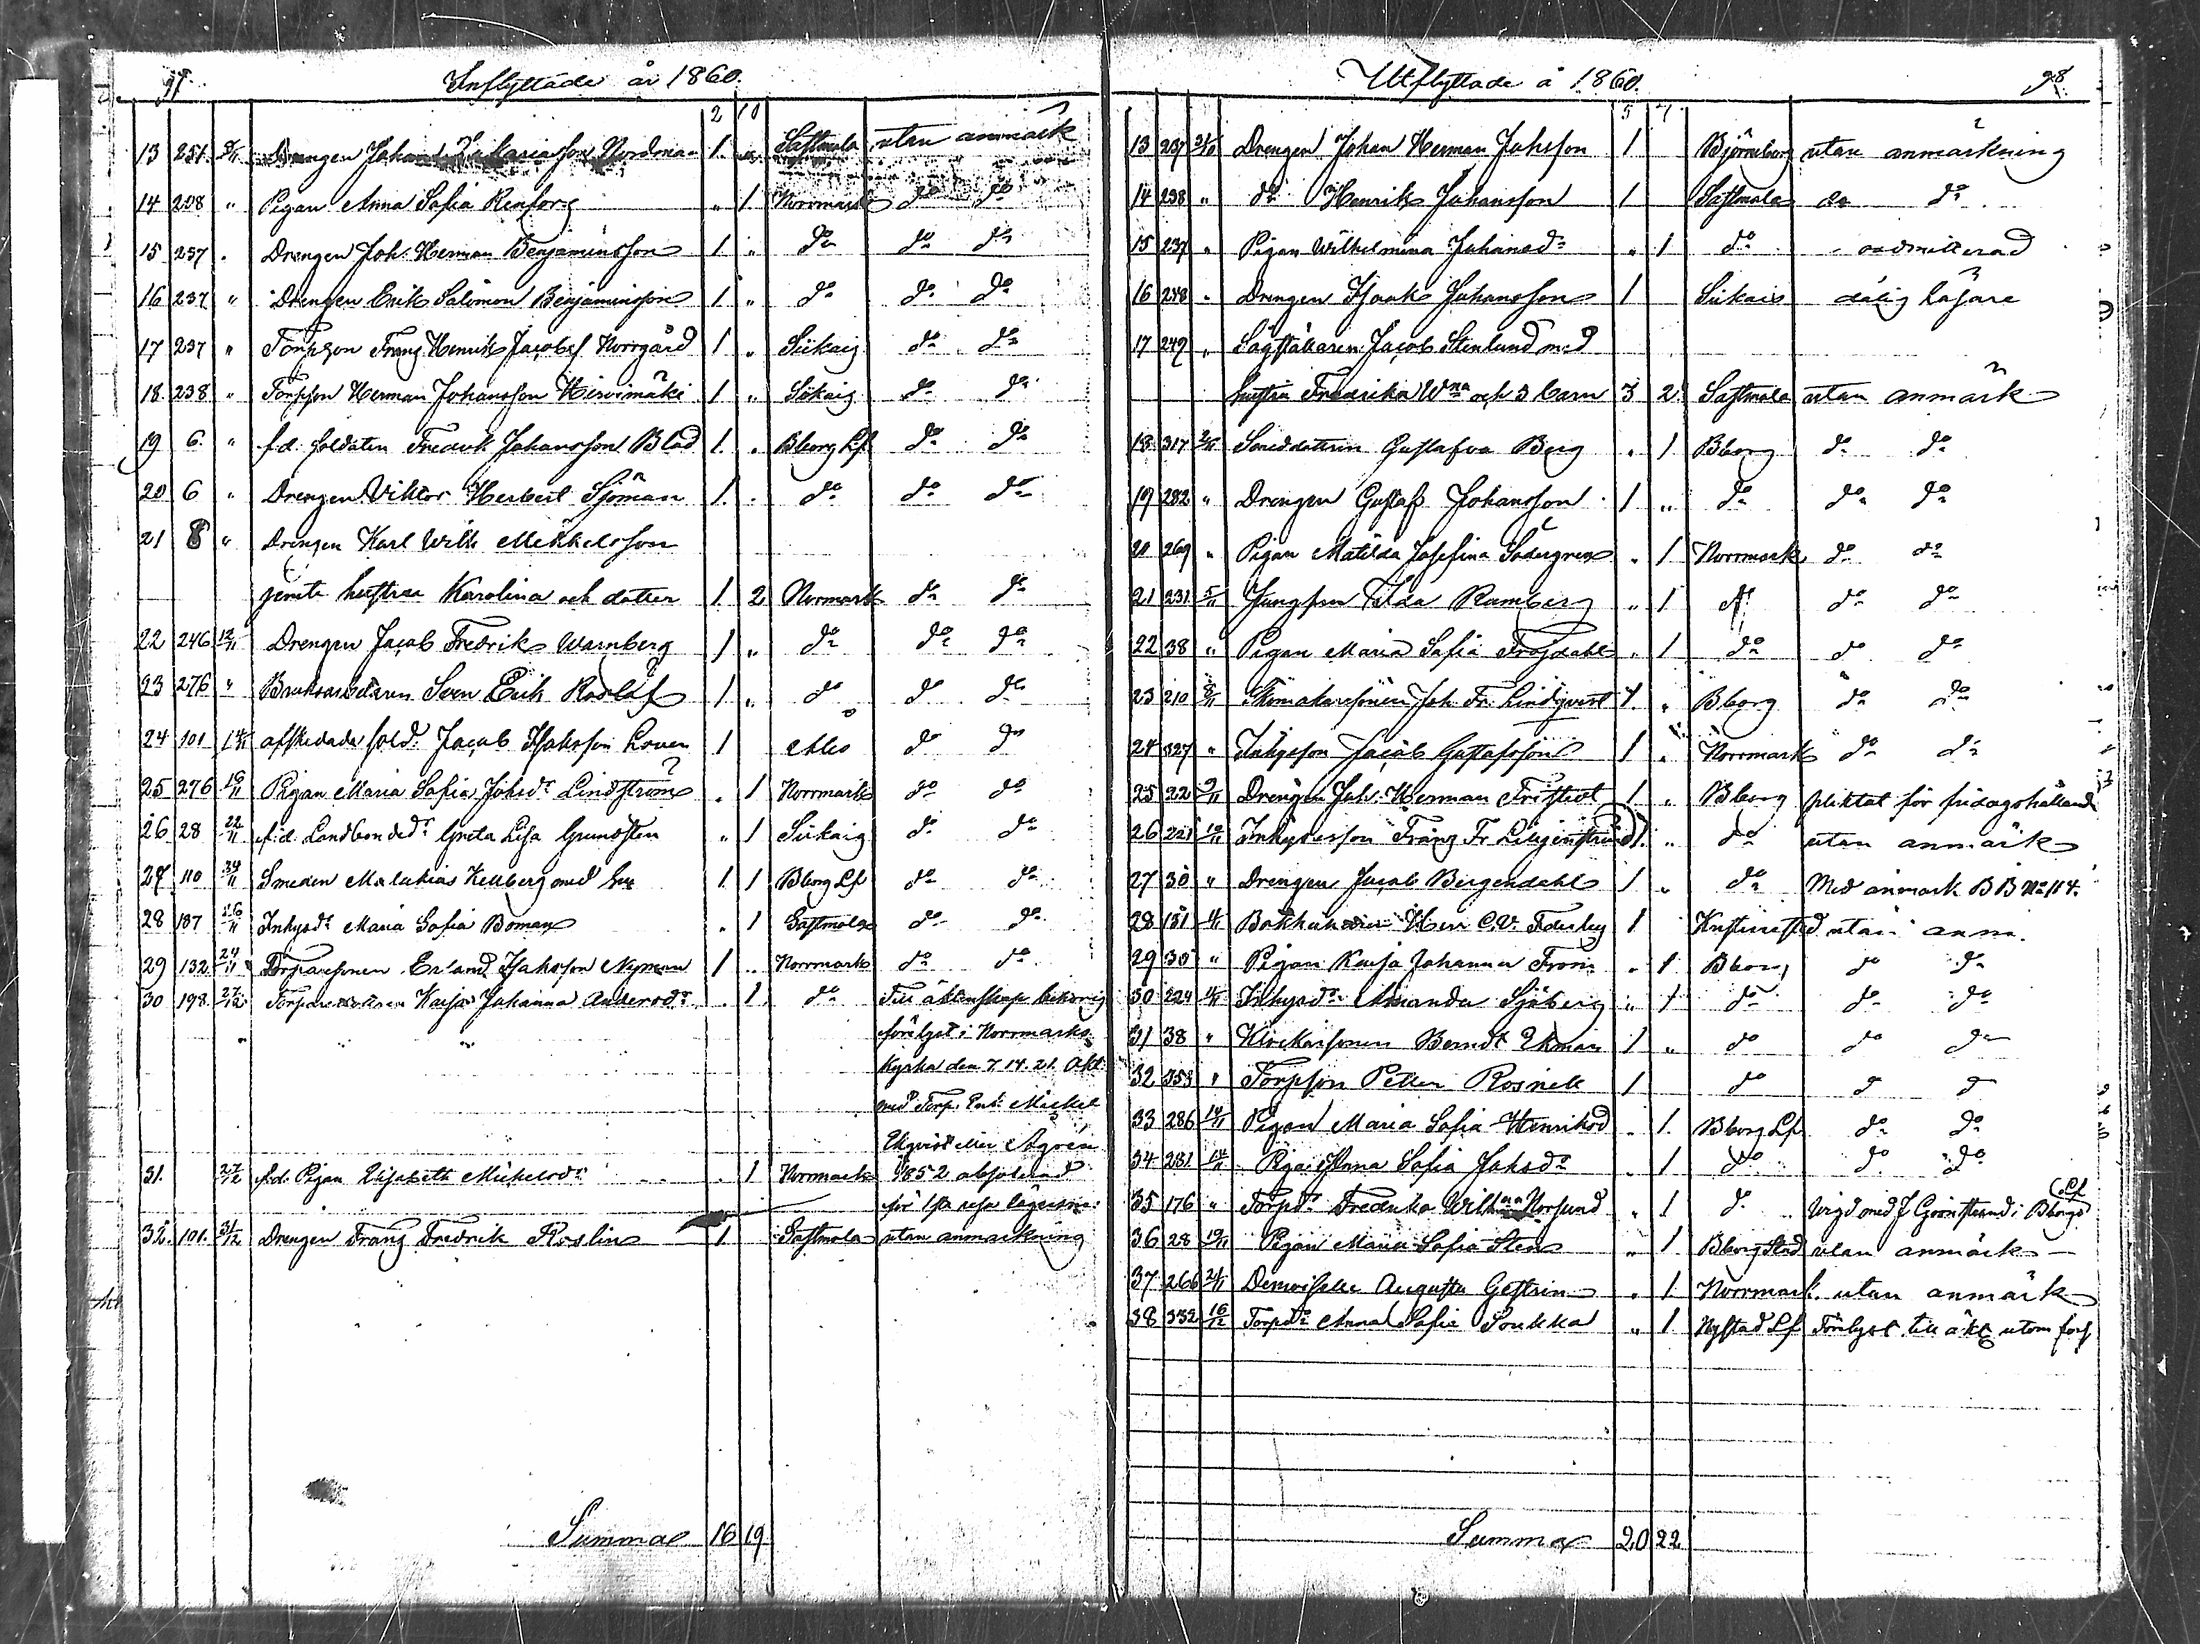 97. Inflyttade år 1860.
2 10
13 251 Drengen Johan Zakariasson Nordman 1. „ Sastmola utan anmärk
14 208 „ Pigan Anna Sofia Renfors „ 1. Norrmark do do
15 237 „ Drengen Joh. Herman Benjaminsson 1. „ do do do
16 237 „ Drengen Erik Salomon Benjaminsson 1. „ do do do
17 237 „ Torpson Franz Henrik Jacobss Norrgård 1 „ Siikais do do
18. 238 „ Torpson Herman Johansson Hirvimäki 1. „ Siikais do do
19 6. „ f.d. soldaten Fredrik Johansson Blad 1. „ Bborg Lf do do
20 6 „ Drengen Viktor Herbert Sjöman 1. „ do do do
21 8 „ Drengen Karl Wilh Mikkelsson
jemte hustrue Karolina och dotter 1. 2 Norrmark do do
22 246 12/11 Drengen Jacob Fredrik Warnberg 1 „ do do do
23 276 „ Bruksarbetaren Sven Erik Roslöf 1 „ do do do
24 101 14/11 afskedade sold. Jacob Isaksson Loven 1 do do
25 276 19/11 Pigan Maria Sofia Johsdr Lindström „ 1 Norrmark do do
26 28 22/11 f.d. Landbondedr Greta Lisa Grundsten „ 1 Siikais do do
27 110 24/11 Smeden Malakias Kellberg med hu 1. 1 Bborg Lf do do
28 187 26/11 Inhysdr Maria Sofia Boman „ 1 Sastmola do do
29 132 Torparesonen Erland Isaksson Nyman 1 „ Norrmark do do
30 198. 27/12 Kajsa Johanna Andersdr „ 1. do Till äktenskap behörig
förelyst i Norrmarks
Kyrka den 7. 14. 21. Okt.
med Torp. Enk. Mickel
Ekqvist eller Agrén
31. 27/12 f.d. Pigan Elisabeth Michelsdr „ 1 Norrmark 1852 absolverad
för 1sta resa lägersm.
32. 101. 31/12 Drengen Franz Fredrik Roslin 1 Sastmola utan anmärkning
Summa 16 19.
Utflyttade å 1860. 98.
5 7
13 237 Drengen Johan Herman Johsson 1 Björneborg utan anmärkning
14 238 „ do Henrik Johansson 1 Sastmola do do
15 237 „ Pigan Wilhelmina Johansdr „ 1 do oadmitterad
16 238 „ Drengen Isaak Johansson 1 Siikais dålig läsare
17 249 „ Sågställaren Jacob Stenlund med
hustru Fredrika Wna och 3 barn 3 2 Sastmola utan anmärk
18. 317 Gustafva Berg „ 1 Bborg do do
19 282 „ Drengen Gustaf Johansson 1 „ do do do
20 269 „ Pigan Matilda Josefina Södergren „ 1 Norrmark do do
21 231 5/11 Jungfrun Tilda Ramberg „ 1 do do do
22 38 „ Pigan Maria Sofia Fröjdahl „ 1 do do do
23 210 8/11 Skomakaresonen Joh. Fr. Lindqvist 1. „ Bborg do do
24 327 „ Inhyseson Jacob Gustafsson 1 „ Norrmark do do
25 22 9/11 Drengen Joh. Herman Fristedt 1 „ Bborg pliktat för fridagshålland
26 221 Inhysesson Franz Fr. Liljenstrand 1. „ do utan anmärk
27 30 „ Drengen Jacob Bergendahl 1 „ do Med anmärk BB No 114.
28 151 Bokhållaren Herr C.V. 1 Kristinestad utan anm.
29 30 „ Pigan Kaisa Johanna From „ 1 Bborg do do
30 224 Inhysdr Amanda Sjöberg „ 1 do do do
31 38 „ Klockarsonen Berndt Ekman 1 „ do do do
32 353 „ Torpson Petter Rosnell 1 do do do
33 286 Pigan Maria Sofia Henriksd „ 1. Bborg Lf do do
34 281 Piga Anna Sofia Johsdr „ 1 do do do
35 176 „ Torpdr Fredrika Wilhna Norlund „ 1 do Vigd med J. Grönstrand i Bborgs Lf
36 28 19/11 Pigan Maria Sofia Sten „ 1. Bborg Stad utan anmärk
37 266 21/11 Demoiselle Augusta Gestrin „ 1. Norrmark. utan anmärk
38 352 16/12 Torpdr Anna Sofia Soukka „ 1. Nystad Lf Förelyst till äkt utom förs
Summa 20 22